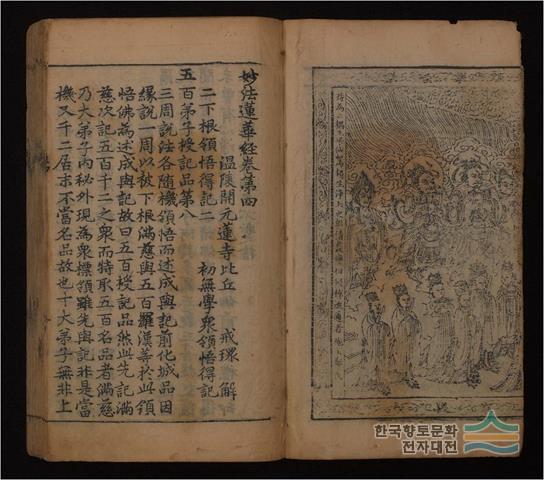 妙法蓮華經卷第四
温陵開元蓮寺比丘 戒環 解
二下根領悟得記二 初無學衆領悟得記
五百弟子授記品第八
三周說法各隨機領悟而述成與記前化城品因
緣說一周以被下根滿慈與五百羅漢等於此領
悟佛為述成與記故曰五百授記品然此先記滿
慈次記五百千二之衆而特取五百名品者滿慈
乃大弟子內秘外現為衆標領雖先與記非是當
機又千二居末不當名品故也十大弟子無非上
한국향토문화
전자대전